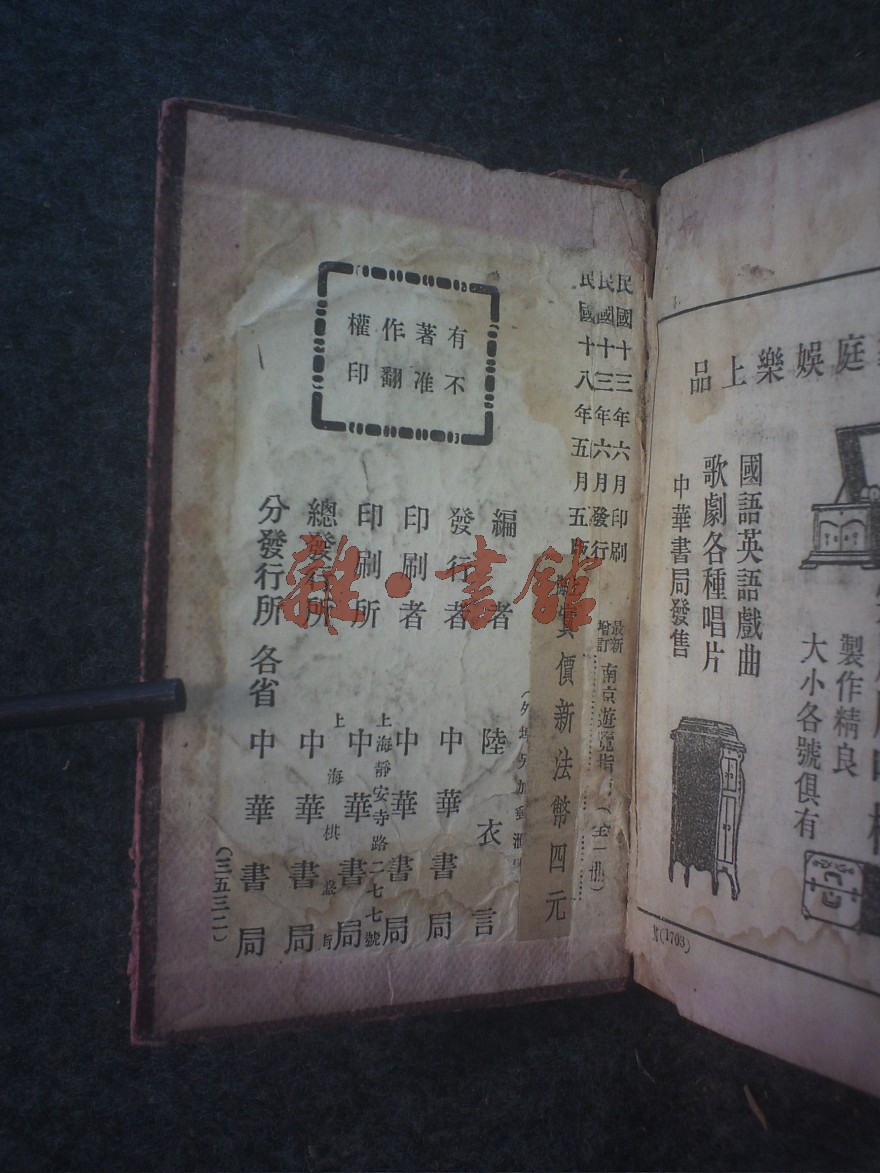 家庭娛樂上品
國語英語戲曲
歌劇各種唱片
中華書局發售
製作精良
大小各號俱有
(1703)
民國十三年六月印刷
民國十三年六月發行
民國十八年五月五版
最新
增訂
南京遊覽指
(全一冊)
實價新法幣四元
編者 陸衣言
發行者 中華書局
印刷者 中華書局
上海靜安寺路二七七號
印刷所 中華書局
上海棋盤街
總發行所 中華書局
分發行所 各省 中華書局
(三五三二)
有著作權
不准翻印
雜·書館